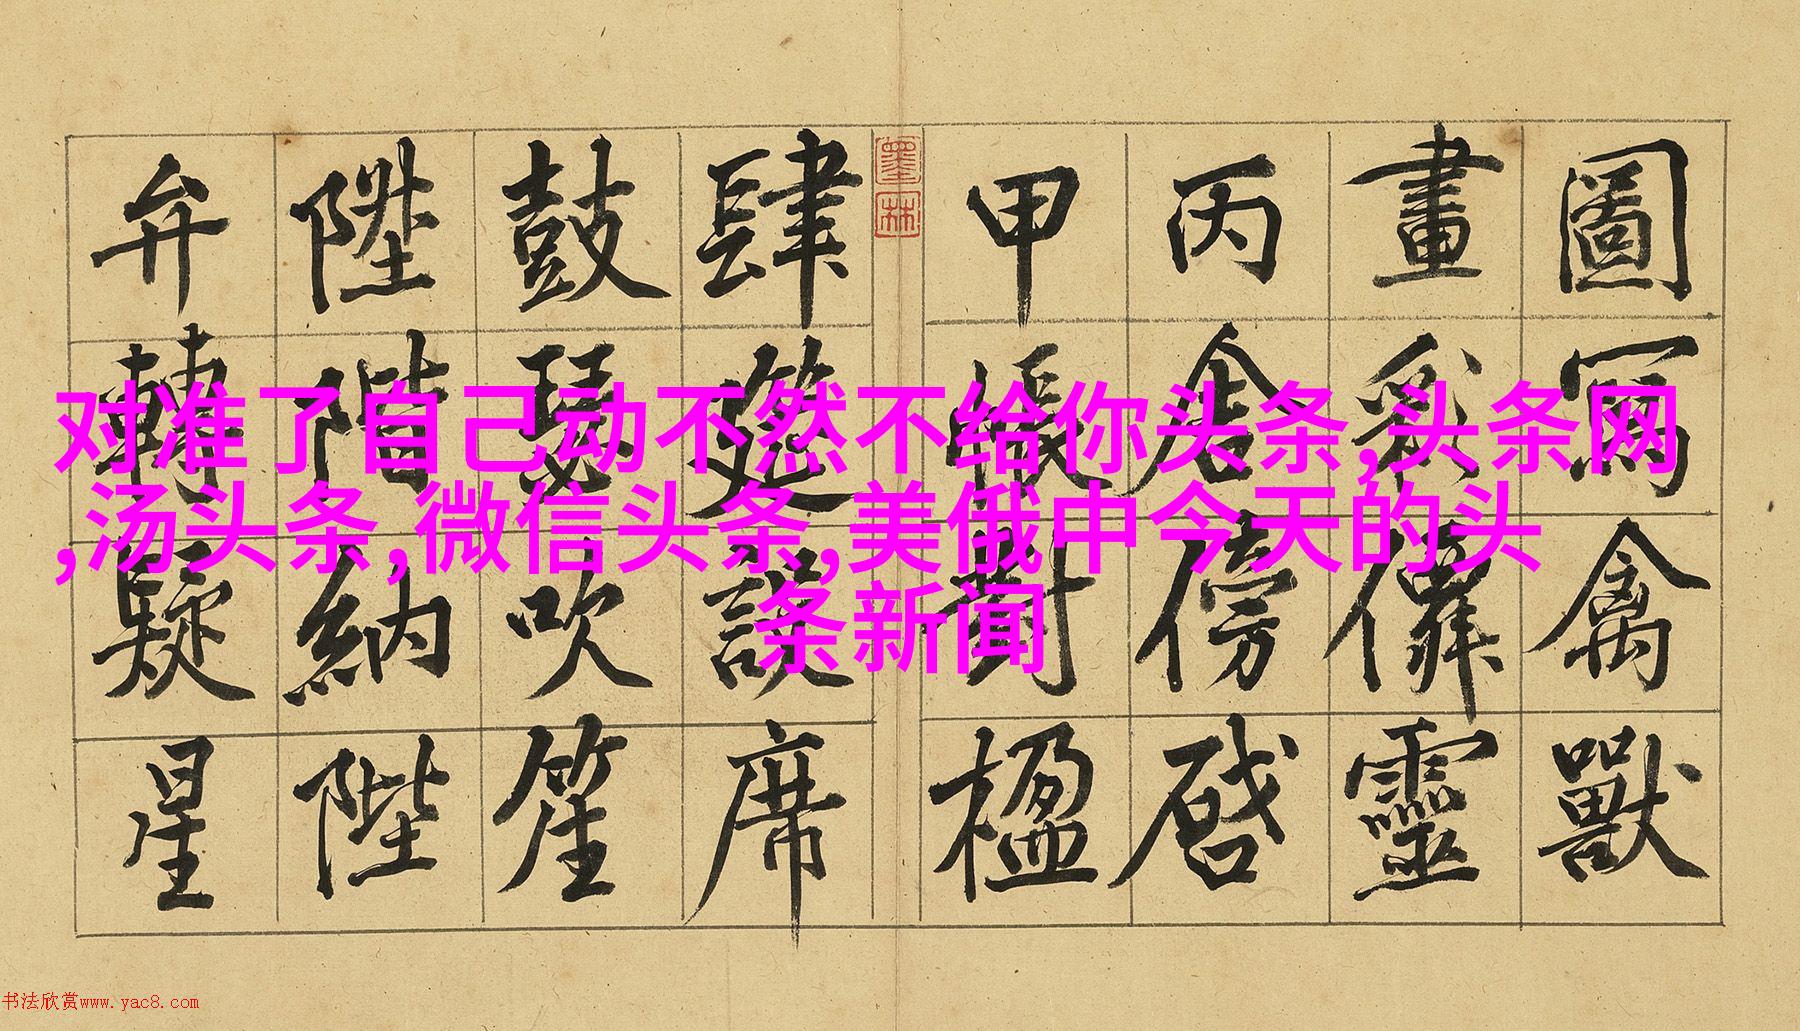 圖寫禽獸
畫彩僊靈
丙舍傍啓
甲帳對楹
墨林
肆筵設席
鼓瑟吹笙
陞階納陛
弁轉疑星
对准了自己动不然不给你头条,头条网
,汤头条,微信头条,美俄中今天的头
条新闻
书法欣赏www.yac8.com